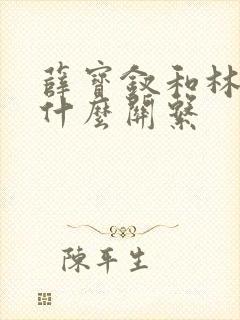 薛寶釵和林
什麼關繫
陳平生